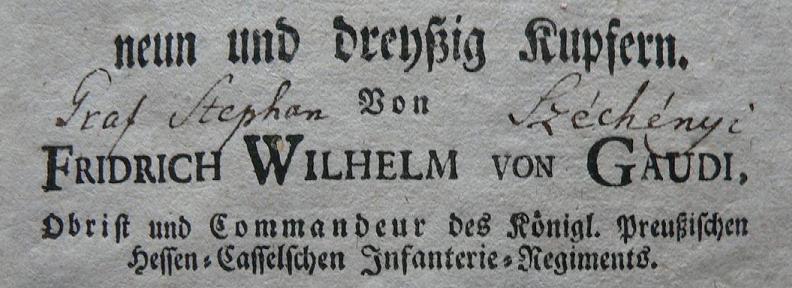 neun und dreyßig Kupfern.
Graf Stephan Von Széchényi
FRIDRICH WILHELM VON GAUDI,
Obrist und Commandeur des Königl. Preußischen
Hessen-Casselschen Infanterie-Regiments.